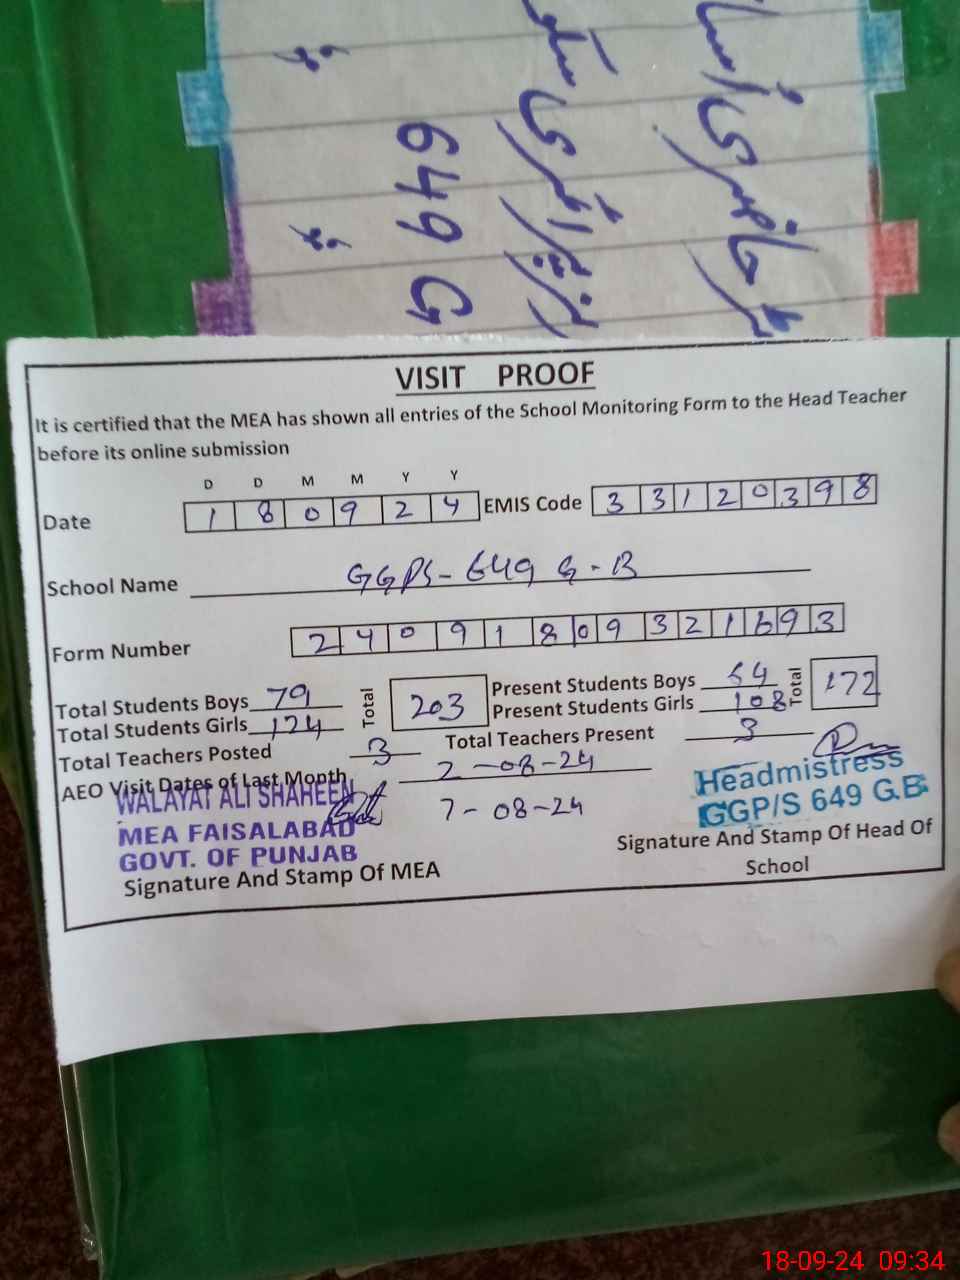 649 G
VISIT PROOF
It is certified that the MEA has shown all entries of the School Monitoring Form to the Head Teacher
before its online submission
D D M M Y Y
Date 1 8 0 9 2 4 EMIS Code 3 3 1 2 0 3 9 8
School Name GGPS - 649 G - B
Form Number 2 4 0 9 1 8 0 9 3 2 1 6 9 3
Total Students Boys 79 Total 203 Present Students Boys 64 Total 172
Total Students Girls 124 Present Students Girls 108
Total Teachers Posted 3 Total Teachers Present 3
AEO Visit Dates of Last Month 2-08-24
7-08-24
WALAYAT ALI SHAHEEN
MEA FAISALABAD
GOVT. OF PUNJAB
Signature And Stamp Of MEA
Headmistress
GGP/S 649 G.B
Signature And Stamp Of Head Of
School
18-09-24 09:34